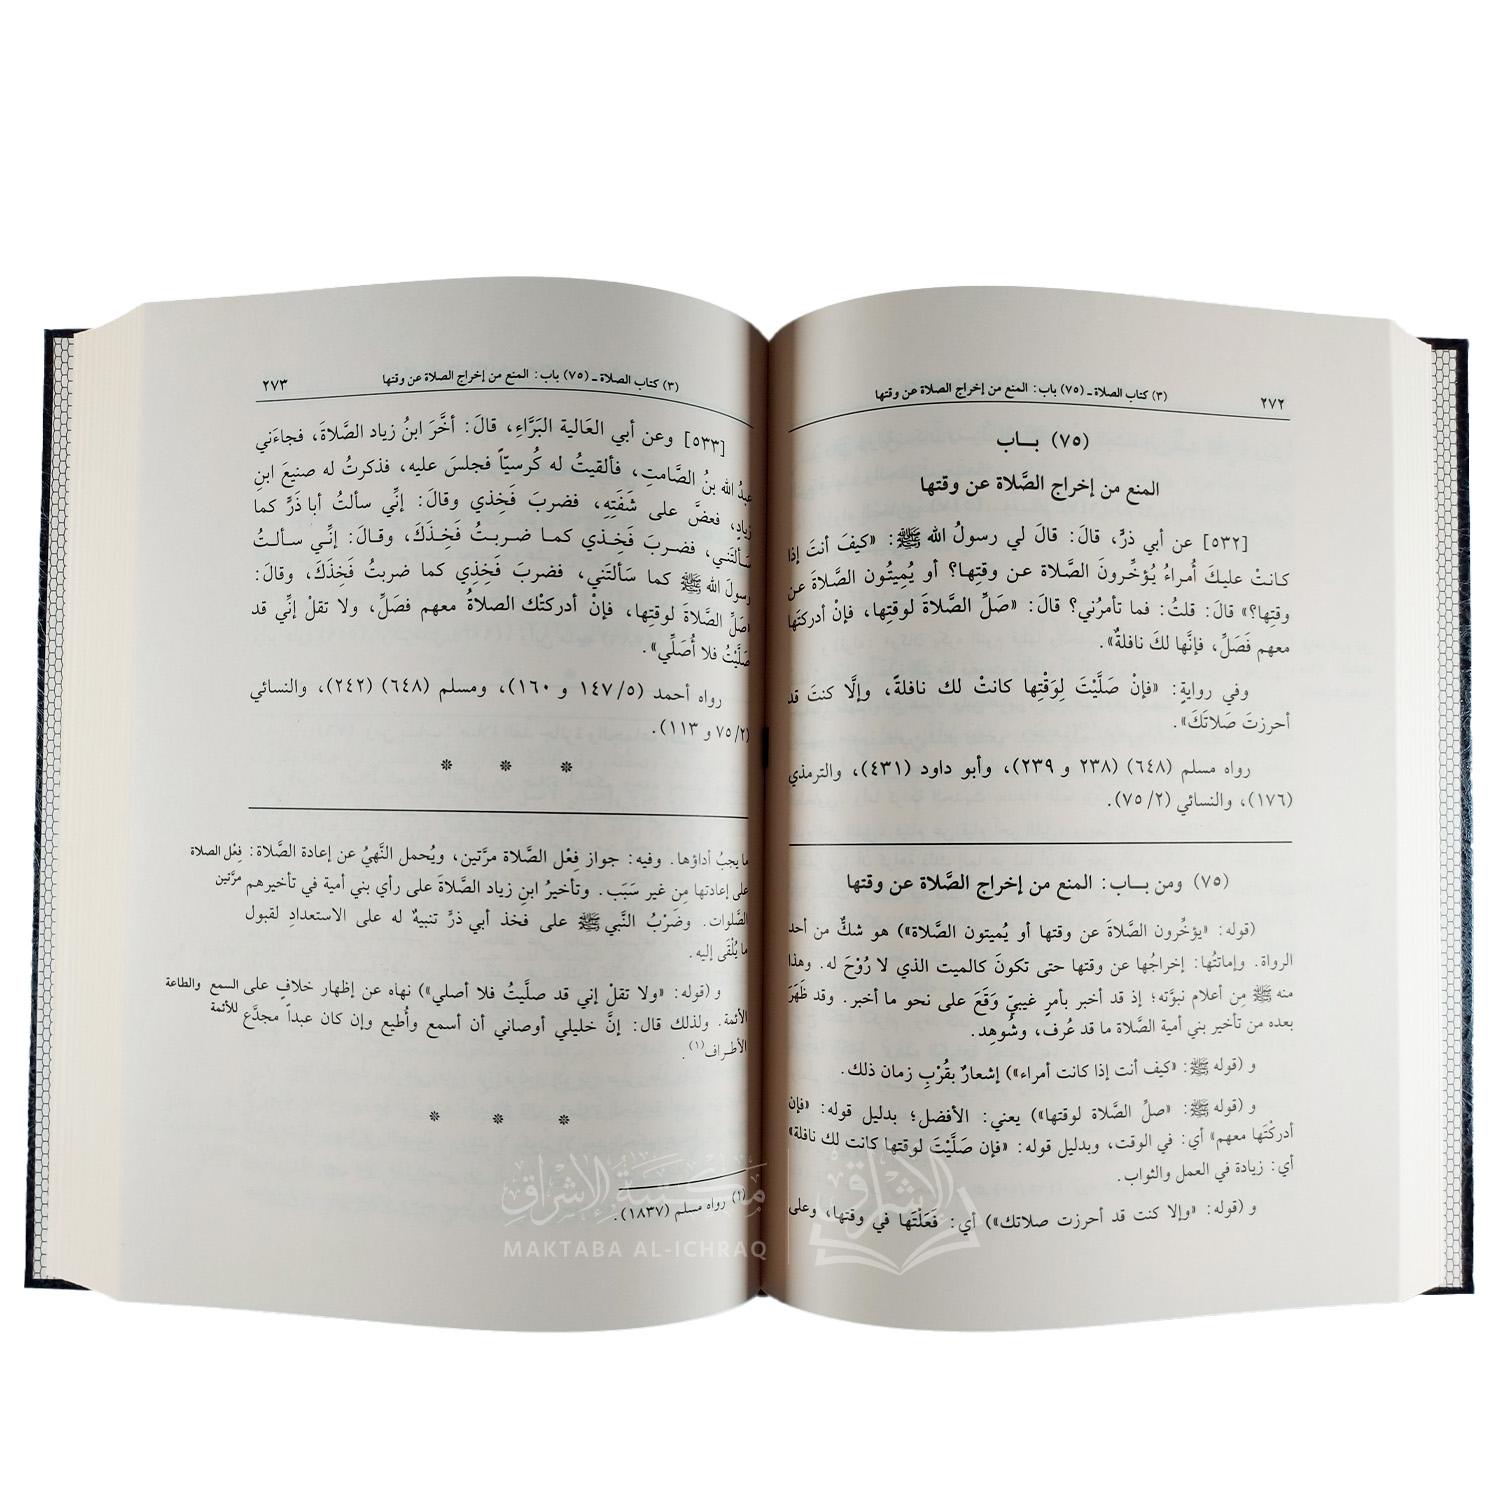 ٢٧٢ (٣) كتاب الصلاة ـ (٧٥) باب: المنع من إخراج الصلاة عن وقتها
(٧٥) بـاب
المنع من إخراج الصَّلاة عن وقتها
[٥٣٢] عن أبي ذرٍّ، قالَ: قالَ لي رسولُ الله ﷺ: «كيفَ أنتَ إذا
كانتْ عليكَ أُمراءُ يُؤخِّرونَ الصَّلاة عن وقتِها؟ أو يُمِيتُون الصَّلاةَ عن
وقتِها؟» قالَ: قلتُ: فما تأمرُني؟ قالَ: «صَلِّ الصَّلاةَ لوقتِها، فإنْ أدركتَها
معهم فَصَلِّ، فإنَّها لكَ نافلةٌ».
وفي روايةٍ: «فإنْ صَلَّيْتَ لِوَقْتِها كانتْ لك نافلةً، وإلَّا كنتَ قد
أحرزتَ صَلاتَكَ».
رواه مسلم (٦٤٨) (٢٣٨ و ٢٣٩)، وأبو داود (٤٣١)، والترمذي
(١٧٦)، والنسائي (٢/ ٧٥).
(٧٥) ومن بـاب: المنع من إخراج الصَّلاة عن وقتها
(قوله: «يؤخِّرون الصَّلاةَ عن وقتها أو يُميتون الصَّلاة») هو شكٌّ من أحد
الرواة. وإماتتُها: إخراجُها عن وقتها حتى تكونَ كالميت الذي لا رُوْحَ له. وهذا
منه ﷺ مِن أعلام نبوَّته؛ إذ قد أخبر بأمرٍ غيبيّ وَقَعَ على نحو ما أخبر. وقد ظَهَرَ
بعده من تأخير بني أمية الصَّلاة ما قد عُرف، وشُوهِد.
و (قوله ﷺ: «كيف أنت إذا كانت أمراء») إشعارٌ بقُرْبِ زمان ذلك.
و (قوله ﷺ: «صلِّ الصَّلاة لوقتها») يعني: الأفضل؛ بدليل قوله: «فإن
أدركْتَها معهم» أي: في الوقت، وبدليل قوله: «فإن صَلَّيْتَ لوقتها كانت لك نافلة»
أي: زيادة في العمل والثواب.
و (قوله: «وإلا كنت قد أحرزت صلاتك») أي: فَعَلْتَها في وقتها، وعلى
(٣) كتاب الصلاة ـ (٧٥) باب: المنع من إخراج الصلاة عن وقتها ٢٧٣
[٥٣٣] وعن أبي العَالية البَرَّاءِ، قالَ: أخَّرَ ابنُ زياد الصَّلاةَ، فجاءَني
عبدُ الله بنُ الصَّامتِ، فألقيتُ له كُرسيّاً فجلسَ عليه، فذكرتُ له صنيعَ ابنِ
زيادٍ، فعضَّ على شَفَتِهِ، فضربَ فَخِذي وقالَ: إنِّي سألتُ أبا ذَرٍّ كما
سَألتَني، فضربَ فَخِذي كما ضربتُ فَخِذَكَ، وقالَ: إنِّي سألتُ
رسولَ الله ﷺ كما سَألتَني، فضربَ فَخِذِي كما ضربتُ فَخِذَكَ، وقالَ:
«صَلِّ الصَّلاةَ لوقتِها، فإنْ أدركتْك الصلاةُ معهم فصَلِّ، ولا تقلْ إنِّي قد
صَلَّيْتُ فلا أُصَلِّي».
رواه أحمد (٥/ ١٤٧ و ١٦٠)، ومسلم (٦٤٨) (٢٤٢)، والنسائي
(٢/ ٧٥ و ١١٣).
* * *
ما يجبُ أداؤها. وفيه: جواز فِعْل الصَّلاة مرَّتين، ويُحمل النَّهيُ عن إعادة الصَّلاة: فِعْل الصلاة مرَّتين
على إعادتها مِن غير سَبَب. وتأخيرُ ابنِ زياد الصَّلاةَ على رأي بني أمية في تأخيرهم
الصَّلوات. وضَرْبُ النَّبي ﷺ على فخذ أبي ذرٍّ تنبيهٌ له على الاستعدادِ لقبول
ما يُلْقَى إليه.
و (قوله: «ولا تقلْ إني قد صليَّتُ فلا أصلي») نهاه عن إظهار خلافٍ على السمع والطاعة
الأئمة. ولذلك قال: إنَّ خليلي أوصاني أن أسمع وأُطيع وإن كان عبداً مجدَّع للأئمة
الأطراف(١).
* * *
(١) رواه مسلم (١٨٣٧).
مكتبة الإشراق
MAKTABA AL-ICHRAQ
الإشراق